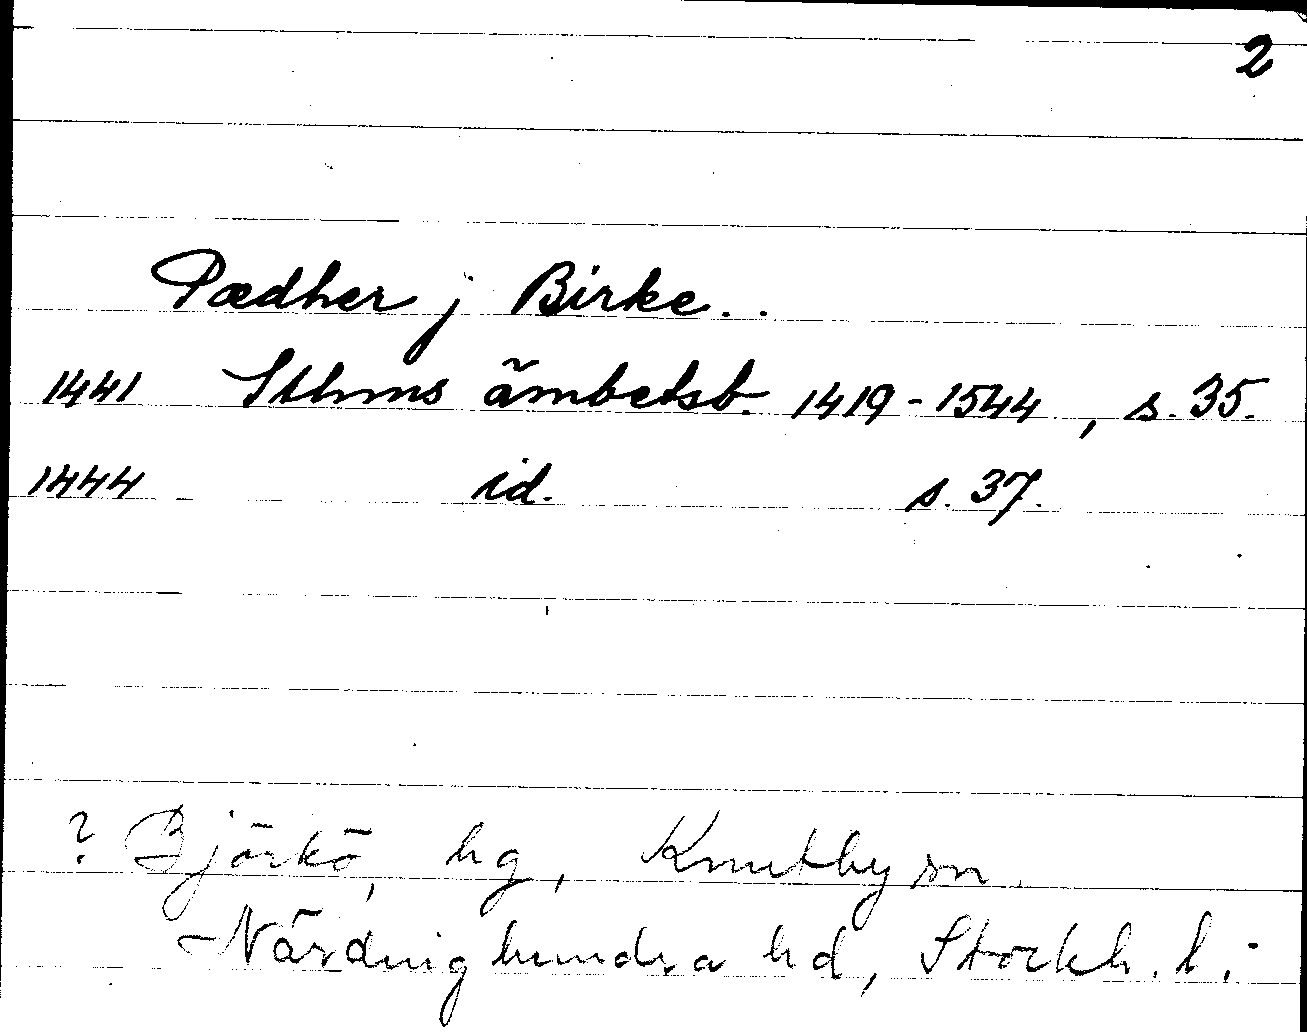 2
Pædher j Birke..
1441 Sthms ämbetsb. 1419-1544, s. 35.
1444 id. s. 37.
? Björkö, hg, Knutby sn.
Närdinghundra hd, Stockh. l.